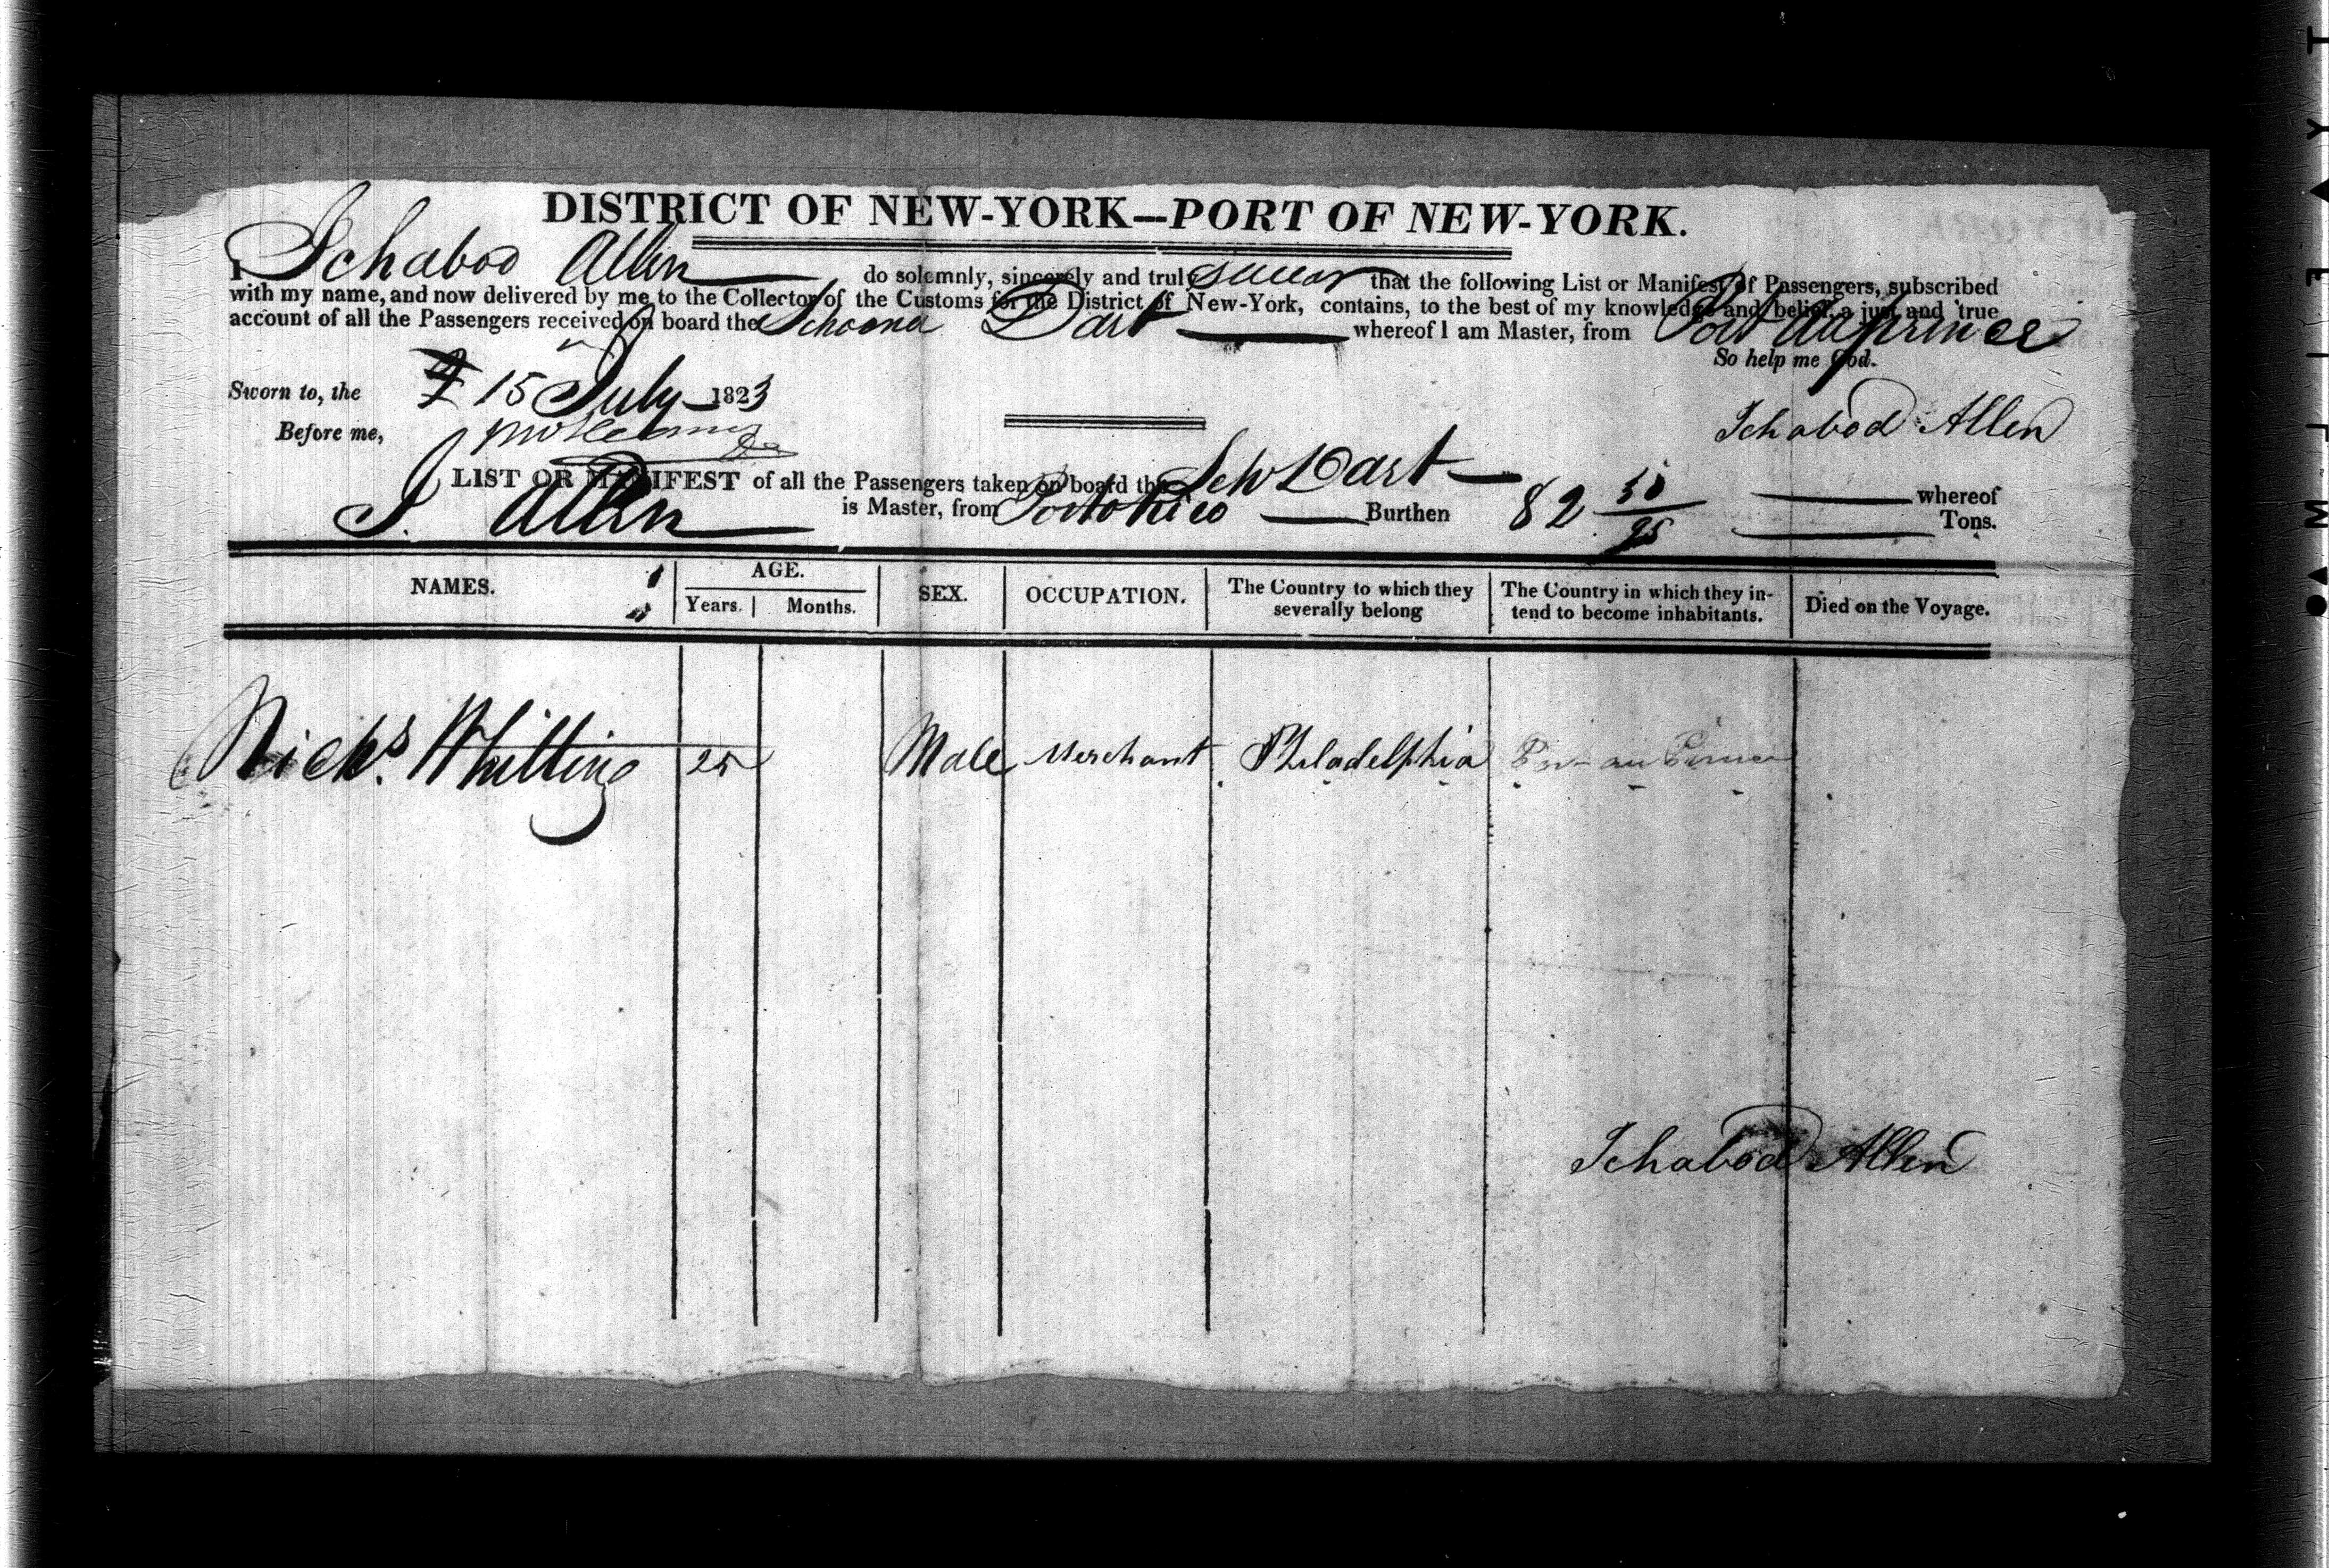 DISTRICT OF NEW-YORK—PORT OF NEW-YORK.
I Ichabod Allen do solemnly, sincerely and truly swear that the following List or Manifest of Passengers, subscribed
with my name, and now delivered by me to the Collector of the Customs for the District of New-York, contains, to the best of my knowledge and belief, a just and true
account of all the Passengers received on board the Schooner Dart whereof I am Master, from Port au prince
So help me God.
Sworn to, the 15 July 1823
Ichabod Allen
Before me,
LIST OR MANIFEST of all the Passengers taken on board the Schr Dart whereof
I. Allen is Master, from Porto Rico Burthen 82 58/95 Tons.
NAMES. AGE. SEX. OCCUPATION. The Country to which they severally belong The Country in which they in-tend to become inhabitants. Died on the Voyage.
Years. Months.
Nichs. Whitting 25 Male Merchant Philadelphia Port au Prince
Ichabod Allen